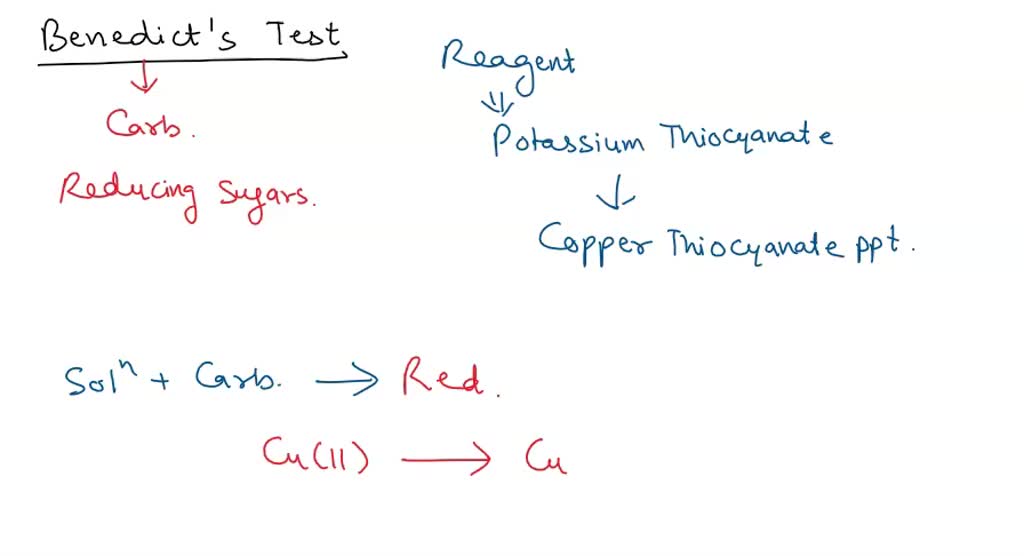 Benedict's Test
Carb.
Reducing Sugars.
Reagent
Potassium Thiocyanate
Copper Thiocyanate ppt.
Solⁿ + Carb. → Red.
Cu(II) → Cu